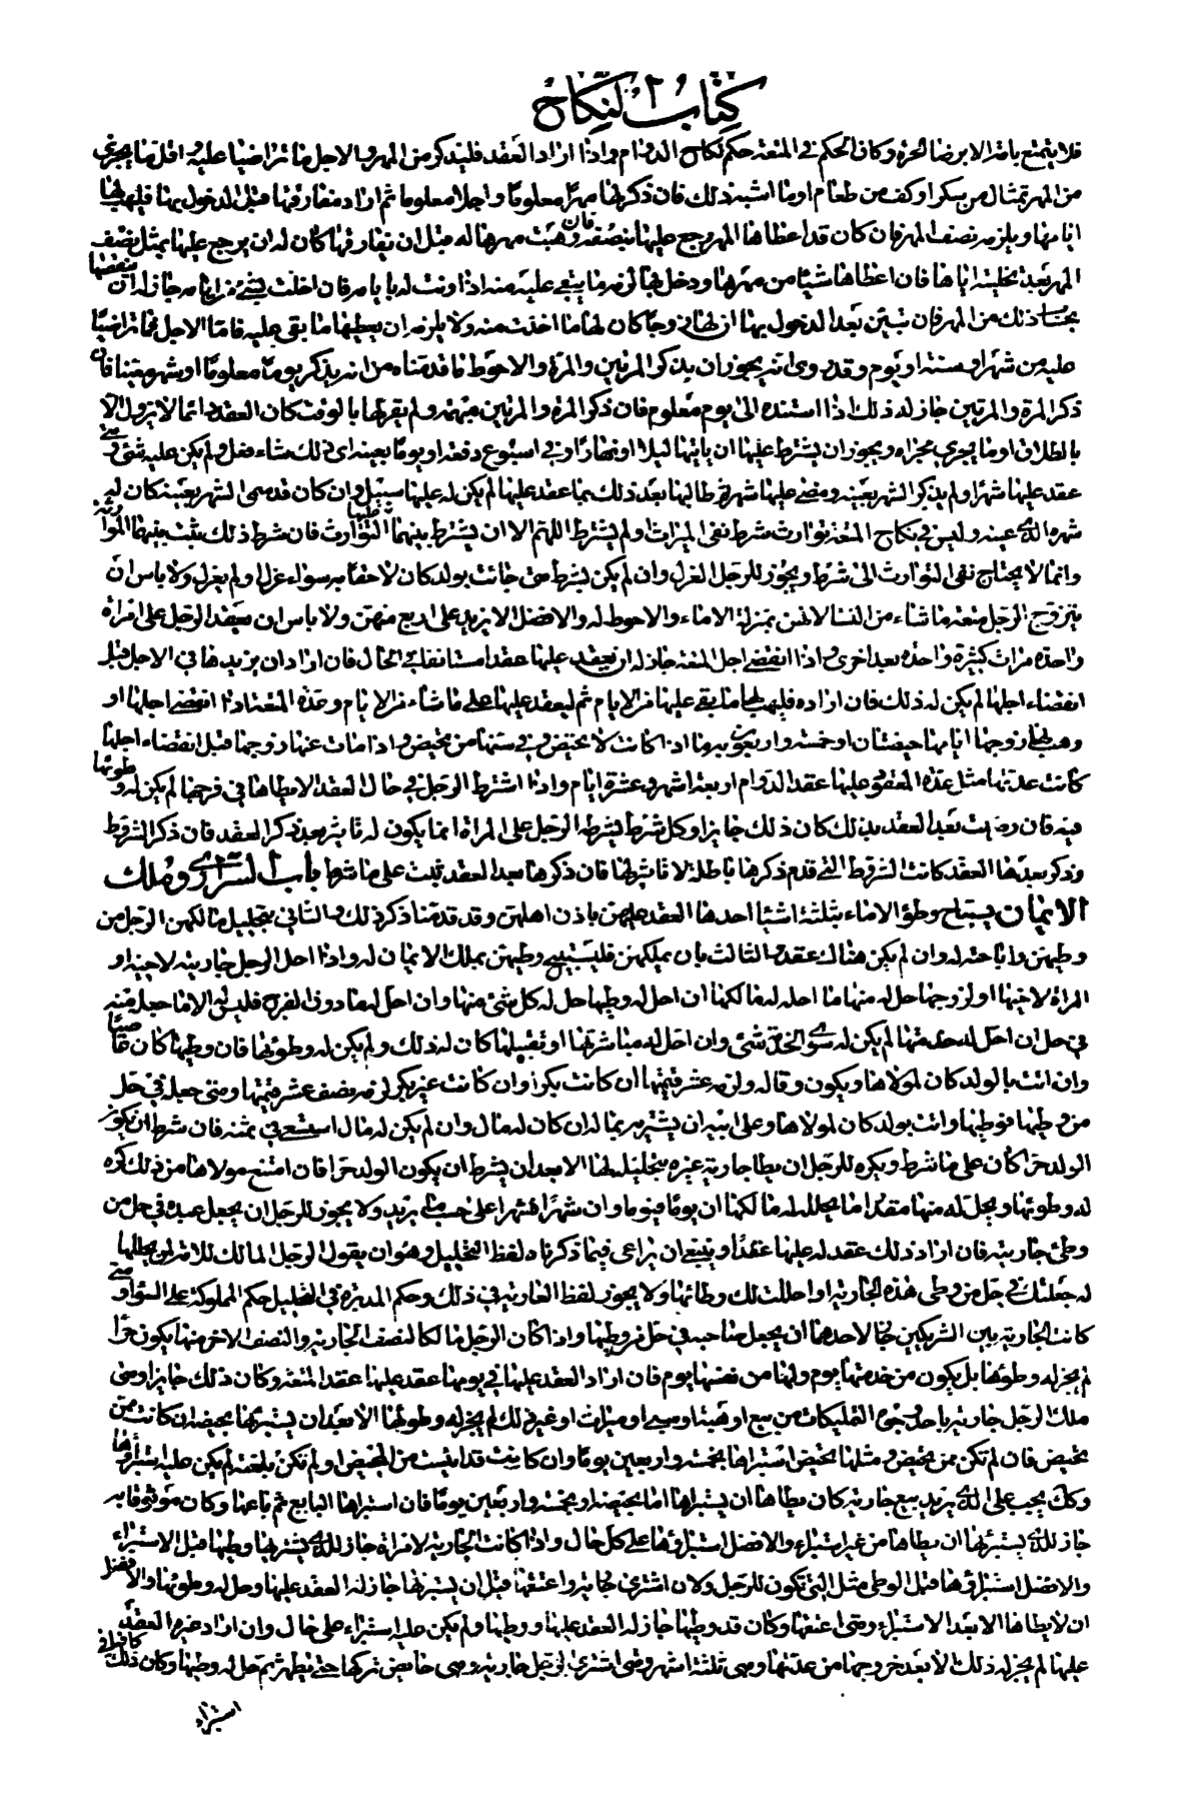 كتاب النكاح
فلا يتمتع بامة الا برضا الحرة وكان الحكم في المتعة حكم نكاح الدوام واذا اراد العقد فليذكر من المهر والاجل ما تراضيا عليه واقل ما يجزي
من المهر تمثال من سكر او كف من طعام او ما اشبه ذلك فان ذكر لها مهرا معلوما واجلا معلوما ثم اراد مفارقتها قبل الدخول بها فليهب لها
ايامها ويلزمه نصف المهر فان كان قد اعطاها المهر رجع عليها بنصفه فان وهبت مهرها له قبل ان يفارقها كان له ان يرجع عليها بمثل نصف
المهر بعد تخليته اياها فان اعطاها شيئا من مهرها ودخل بها لزمه ما يبقى عليه منه اذا وفت له بايامه فان اخلت بشيء من ايامه جاز له ان ينقصها
بحساب ذلك من المهر فان تبين بعد الدخول بها ان لها زوجا كان لها ما اخذت منه ولا يلزمه ان يعطيها ما بقي عليه فاما الاجل فما تراضيا
عليه من شهر او سنة او يوم وقد روى انه يجوز ان يذكر المرتين والمرة والاحوط ما قدمناه من انه يذكر يوما معلوما او شهرا معينا فان
ذكر المرة والمرتين جاز له ذلك اذا اسنده الى يوم معلوم فان ذكر المرة والمرتين مبهمة ولم يقرنها بالوقت كان العقد دائما لا يزول الا
بالطلاق او ما يجري مجراه ويجوز ان يشترط عليها ان ياتيها ليلا او نهارا او في اسبوع دفعة او يوما بعينه اي ذلك شاء فعل ولم يكن عليه شئ ومتى
عقد عليها شهرا ولم يذكر الشهر بعينه ومضى عليها شهر ثم طالبها بعد ذلك بما عقد عليها لم يكن له عليها سبيل وان كان قد سمى الشهر بعينه كان له
شهره الذي عينه وليس في نكاح المتعة توارث شرط نفى الميراث او لم يشترط اللهم الا ان يشترط بينهما التوارث فان شرط ذلك ثبت بينهما الموارثة
وانما لا يحتاج نفى التوارث الى شرط ويجوز للرجل العزل وان لم يكن يشرط متى جائت بولد كان لاحقا به سواء عزل او لم يعزل ولا باس ان
يتزوج الرجل متعة ما شاء من النساء لانهن بمنزلة الاماء والاحوط له والافضل الا يزيد على اربع منهن ولا باس ان يعقد الرجل على امراة
واحدة مرات كثيرة واحدة بعد اخرى واذا انقضى اجل المتعة جاز له ان يعقد عليها عقدا مستانفا في الحال فان اراد ان يزيدها في الاجل قبل
انقضاء اجلها لم يكن له ذلك فان اراده فليهب لها ما بقي عليها من الايام ثم ليعقد عليها على ما شاء من الايام وعدة المتعة اذا انقضى اجلها او
وهب لها زوجها ايامها حيضتان او خمسة واربعون يوما اذا كانت لا تحيض وفي سنها من تحيض واذا مات عنها زوجها قبل انقضاء اجلها
كانت عدتها مثل عدة المعقود عليها عقد الدوام اربعة اشهر وعشرة ايام واذا اشترط الرجل في حال العقد الا يطاها في فرجها لم يكن له وطوئها
فيه فان رضيت بعد العقد بذلك كان ذلك جايزا وكل شرط يشرطه الرجل على المراة انما يكون له تاثير بعد ذكر العقد فان ذكر الشروط
وذكر بعدها العقد كانت الشروط التي قدم ذكرها باطلة لا تاثير لها فان ذكرها بعد العقد ثبت على ما شرط باب السراري وملك
الايمان يستباح وطؤ الاماء بثلثة اشيا احدها العقد عليهن باذن اهلهن وقد قدمنا ذكر ذلك والثاني بتحليل مالكهن الرجل من
وطيهن واباحته له وان لم يكن هناك عقد والثالث بان يملكهن فليستبيح وطيهن بملك الايمان له واذا احل الرجل جاريته لاخيه او
المراة لاخيها او لزوجها حل له منها ما احله له مالكها ان احل له وطيها حل له كل شئ منها وان احل له ما دون الفرج فليس له الا ما جعله منه
في حل ان احل له خدمتها لم يكن له سوى الخدمة شئ وان احل له مباشرتها او تقبيلها كان له ذلك ولم يكن له وطوئها فان وطيها كان عاصيا
وان اتت بالولد كان لمولاها ويكون رقا له ولزمه عشر قيمتها ان كانت بكرا وان كانت غير بكر لزمه نصف عشر قيمتها ومتى جعله في حل
من وطيها فوطيها واتت بولد كان لمولاها وعلى ابيه ان يشتريه بماله ان كان له مال وان لم يكن له مال استسعى في ثمنه فان شرط ان يكون
الولد حرا كان على ما شرط ويكره للرجل ان يطا جارية غيره بتحليله لها الا بعد ان يشرط ان يكون الولد حرا فان امتنع مولاها من ذلك كره
له وطوئها ويحل له منها مقدار ما يحلله مالكها ان يوما فيوما وان شهرا فشهرا على حسب ما يريد ولا يجوز للرجل ان يجعل عبده في حل من
وطئ جاريته فان اراد ذلك عقد له عليها عقدا وينبغي ان يراعى فيما ذكرناه لفظ التحليل وهو ان يقول الرجل المالك للامة لمن يحللها
له جعلتك في حل من وطى هذه الجارية او احللت لك وطائها ولا يجوز لفظ العارية في ذلك وحكم المدبرة في التحليل حكم المملوكة على السواء ومتى
كانت الجارية بين الشريكين جاز لاحدهما ان يجعل صاحبه في حل من وطيها واذا كان الرجل مالكا لنصف الجارية والنصف الاخر منها يكون حرا
لم يجز له وطوئها بل يكون من خدمتها يوم ولها من نفسها يوم فان اراد العقد عليها في يومها عقد عليها عقد المتعة وكان ذلك جايزا ومتى
ملك الرجل جارية باحد وجوه التمليكات من بيع او هبة او سبى او ميراث او غير ذلك لم يجز له وطوئها الا بعد ان يستبرئها بحيضة ان كانت ممن
تحيض فان لم تكن ممن تحيض ومثلها تحيض استبراها بخمسة واربعين يوما وان كانت قد ايست من المحيض او لم تكن بلغته لم يكن عليه استبراؤها
وكك يجب على الذي يريد بيع جارية كان يطاها ان يستبراها اما بحيضة او بخمسة واربعين يوما فان استبراها البايع ثم باعها وكان موثوقا به
جاز للذي يشتريها ان يطاها من غير استبراء والافضل استبراؤها على كل حال واذا كانت الجارية لامراة جاز للذي يشتريها وطيها قبل الاستبراء
والافضل استبراؤها قبل الوطى مثل التي تكون للرجل ولان اشترى جارية واعتقها قبل ان يستبرئها جاز له العقد عليها وحل له وطوئها والافضل
ان لا يطاها الا بعد الاستبراء ومتى اعتقها وكان قد وطيها جاز له العقد عليها ووطيها ولم يكن عليه استبراء على حال وان اراد غيره العقد
عليها لم يجز له ذلك الا بعد خروجها من عدتها وهى ثلثة اشهر ومتى اشترى الرجل جارية وهى حائض تركها حتى تطهر ثم حل له وطيها وكان ذلك كافيا في
استبراء